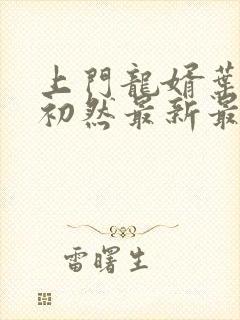 上門龍婿葉
初然最新最
雷曙生